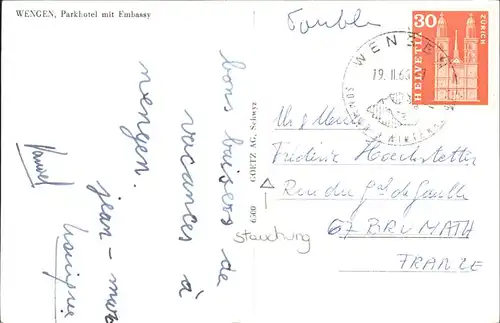 WENGEN, Parkhotel mit Embassy
bons baisers de
vacances à
wengen.
jean-marc
GOETZ AG, Schwyz
6500
Stauchung
HELVETIA
30
ZÜRICH
WENGEN
Mr & Mme
Frédéric Hochstetter
Rue du Gal de Gaulle
67 BRUMATH
FRANCE